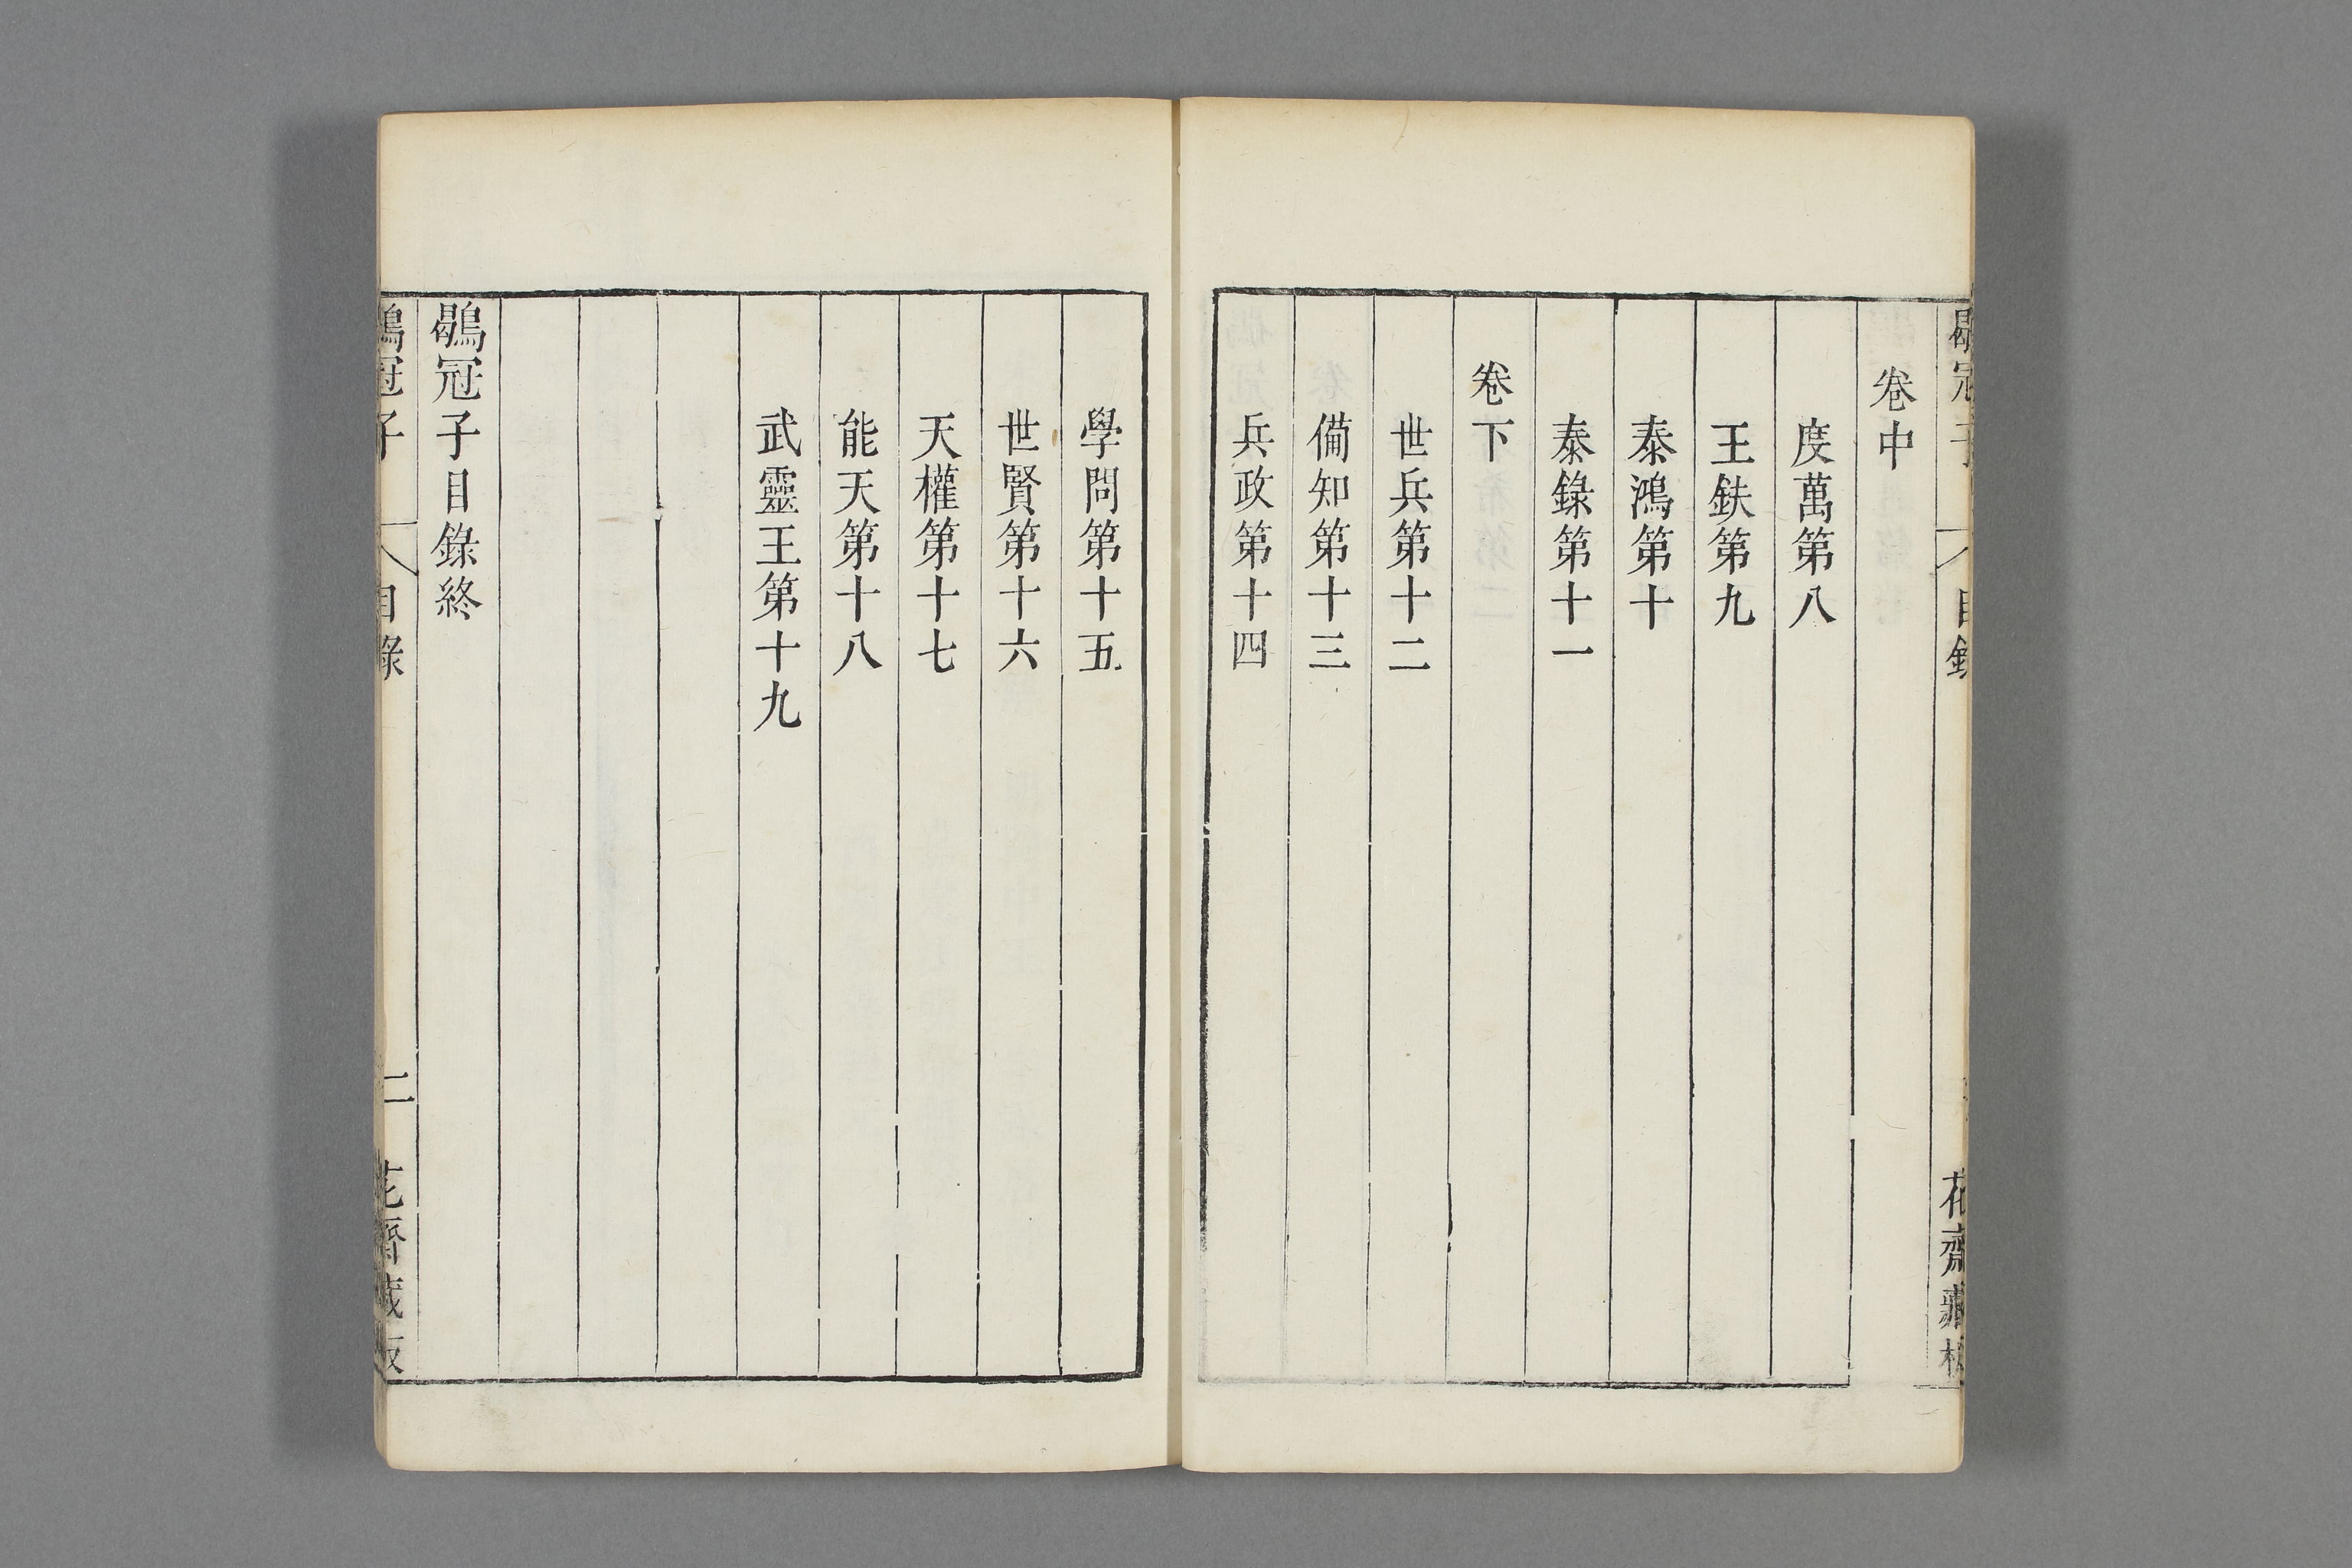 卷中
度萬第八
王鈇第九
泰鴻第十
泰錄第十一
卷下
世兵第十二
備知第十三
兵政第十四
學問第十五
世賢第十六
天權第十七
能天第十八
武靈王第十九
鶡冠子目錄終
鶡冠子
目錄
二
花齋藏板